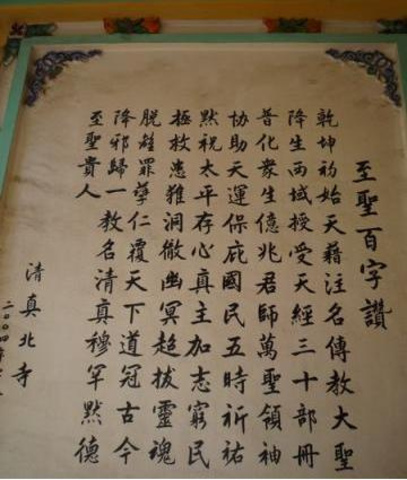 至聖百字讚
乾坤初始天籍注名傳教大聖
降生西域授受天經三十部冊
普化眾生億兆君師萬聖領袖
協助天運保庇國民五時祈祐
默祝太平存心真主加志窮民
極救患難洞徹幽冥超拔靈魂
脫離罪孽仁覆天下道冠古今
降邪歸一教名清真穆罕默德
至聖貴人
清真北寺
二〇〇四年